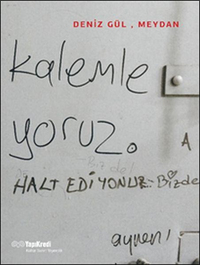 DENİZ GÜL , MEYDAN
kalemle
yoruz.
A
Bizde
HALT EDİYONUZ - Bizde
aynen!
YapıKredi